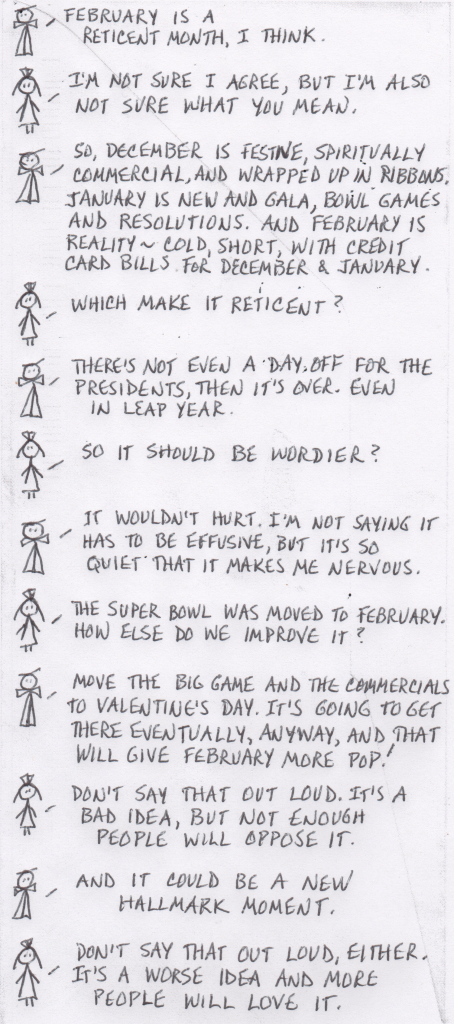 FEBRUARY IS A
RETICENT MONTH, I THINK.
I'M NOT SURE I AGREE, BUT I'M ALSO
NOT SURE WHAT YOU MEAN.
SO, DECEMBER IS FESTIVE, SPIRITUALLY
COMMERCIAL, AND WRAPPED UP IN RIBBONS.
JANUARY IS NEW AND GALA, BOWL GAMES
AND RESOLUTIONS. AND FEBRUARY IS
REALITY ~ COLD, SHORT, WITH CREDIT
CARD BILLS FOR DECEMBER & JANUARY.
WHICH MAKE IT RETICENT?
THERE'S NOT EVEN A DAY OFF FOR THE
PRESIDENTS, THEN IT'S OVER. EVEN
IN LEAP YEAR.
SO IT SHOULD BE WORDIER?
IT WOULDN'T HURT. I'M NOT SAYING IT
HAS TO BE EFFUSIVE, BUT IT'S SO
QUIET THAT IT MAKES ME NERVOUS.
THE SUPER BOWL WAS MOVED TO FEBRUARY.
HOW ELSE DO WE IMPROVE IT?
MOVE THE BIG GAME AND THE COMMERCIALS
TO VALENTINE'S DAY. IT'S GOING TO GET
THERE EVENTUALLY, ANYWAY, AND THAT
WILL GIVE FEBRUARY MORE POP!
DON'T SAY THAT OUT LOUD. IT'S A
BAD IDEA, BUT NOT ENOUGH
PEOPLE WILL OPPOSE IT.
AND IT COULD BE A NEW
HALLMARK MOMENT.
DON'T SAY THAT OUT LOUD, EITHER.
IT'S A WORSE IDEA AND MORE
PEOPLE WILL LOVE IT.